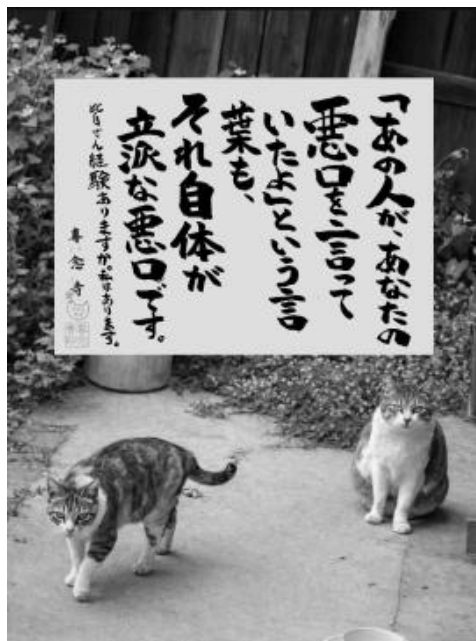 「あの人が、あなたの
悪口を言って
いたよ」という言
葉も、
それ自体が
立派な悪口です。
皆さん経験ありますか。私はあります。
専念寺